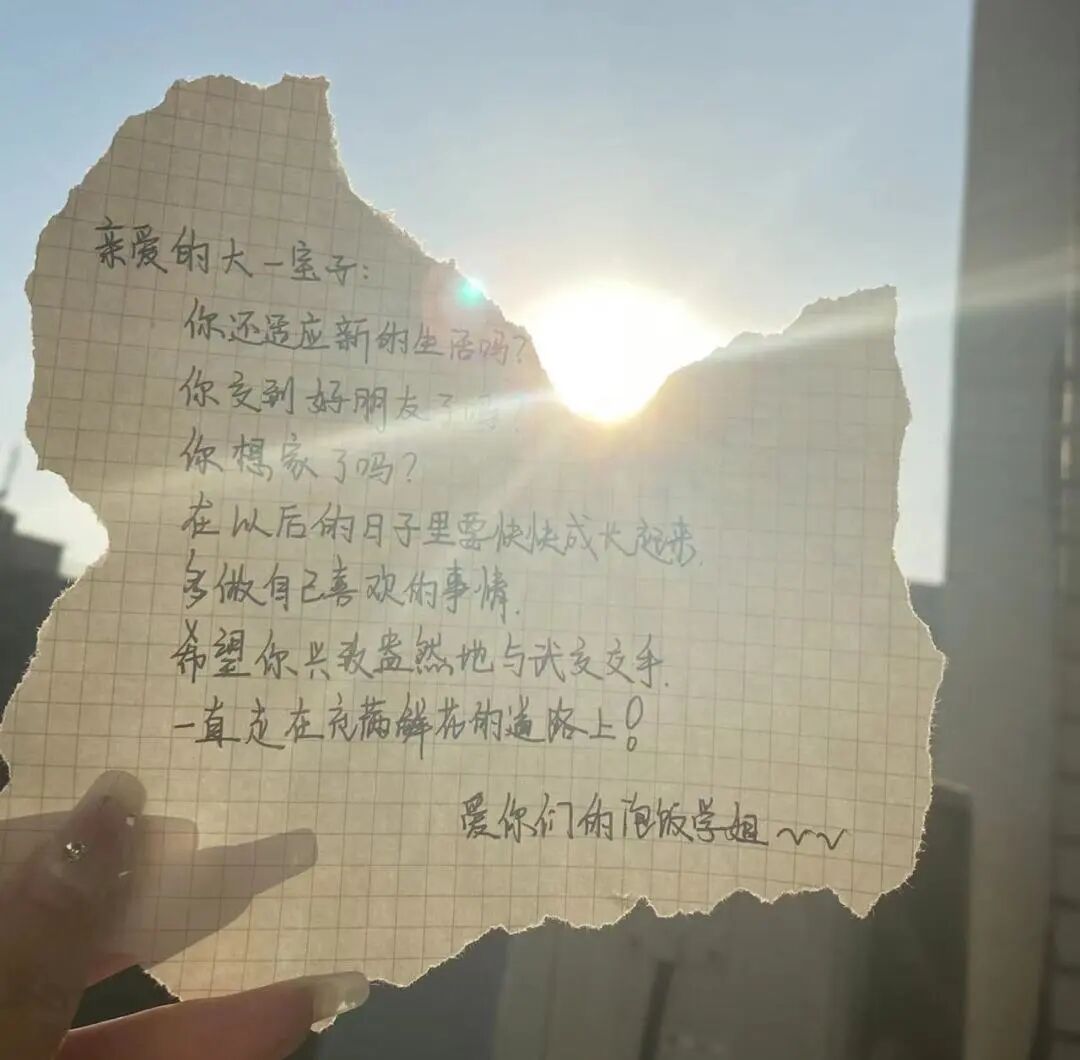 亲爱的大一室子：
你还适应新的生活吗？
你交到好朋友了吗？
你想家了吗？
在以后的日子里要快快成长起来.
多做自己喜欢的事情.
希望你兴致盎然地与武交交手.
一直走在充满鲜花的道路上！
爱你们的泡饭学姐~~